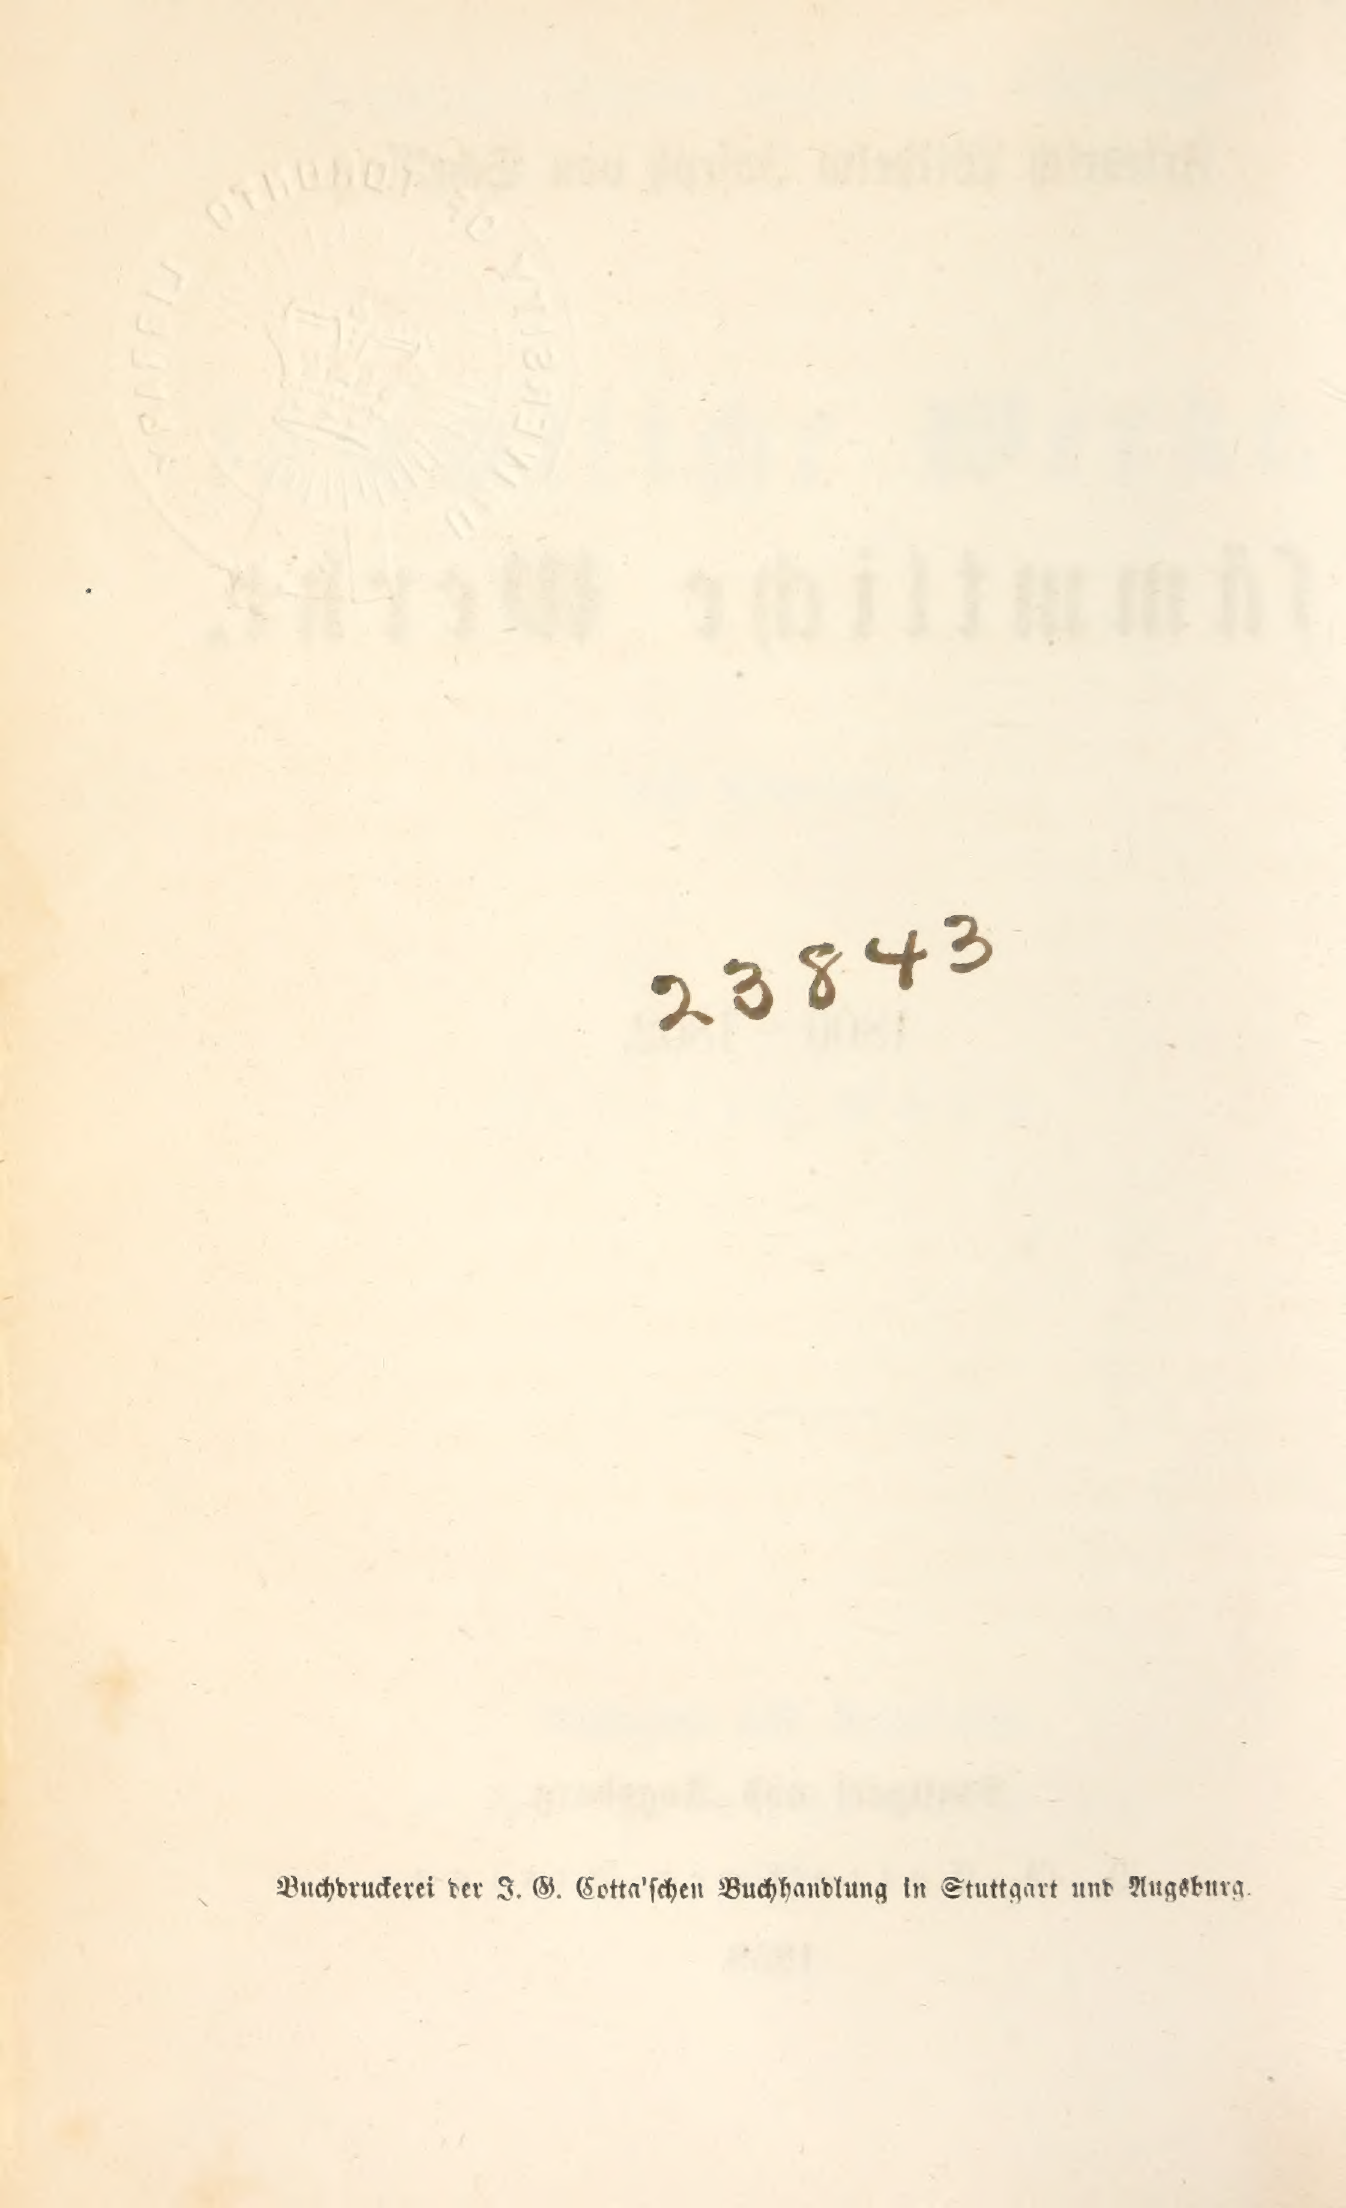 23843
Buchdruckerei der J. G. Cotta'schen Buchhandlung in Stuttgart und Augsburg.